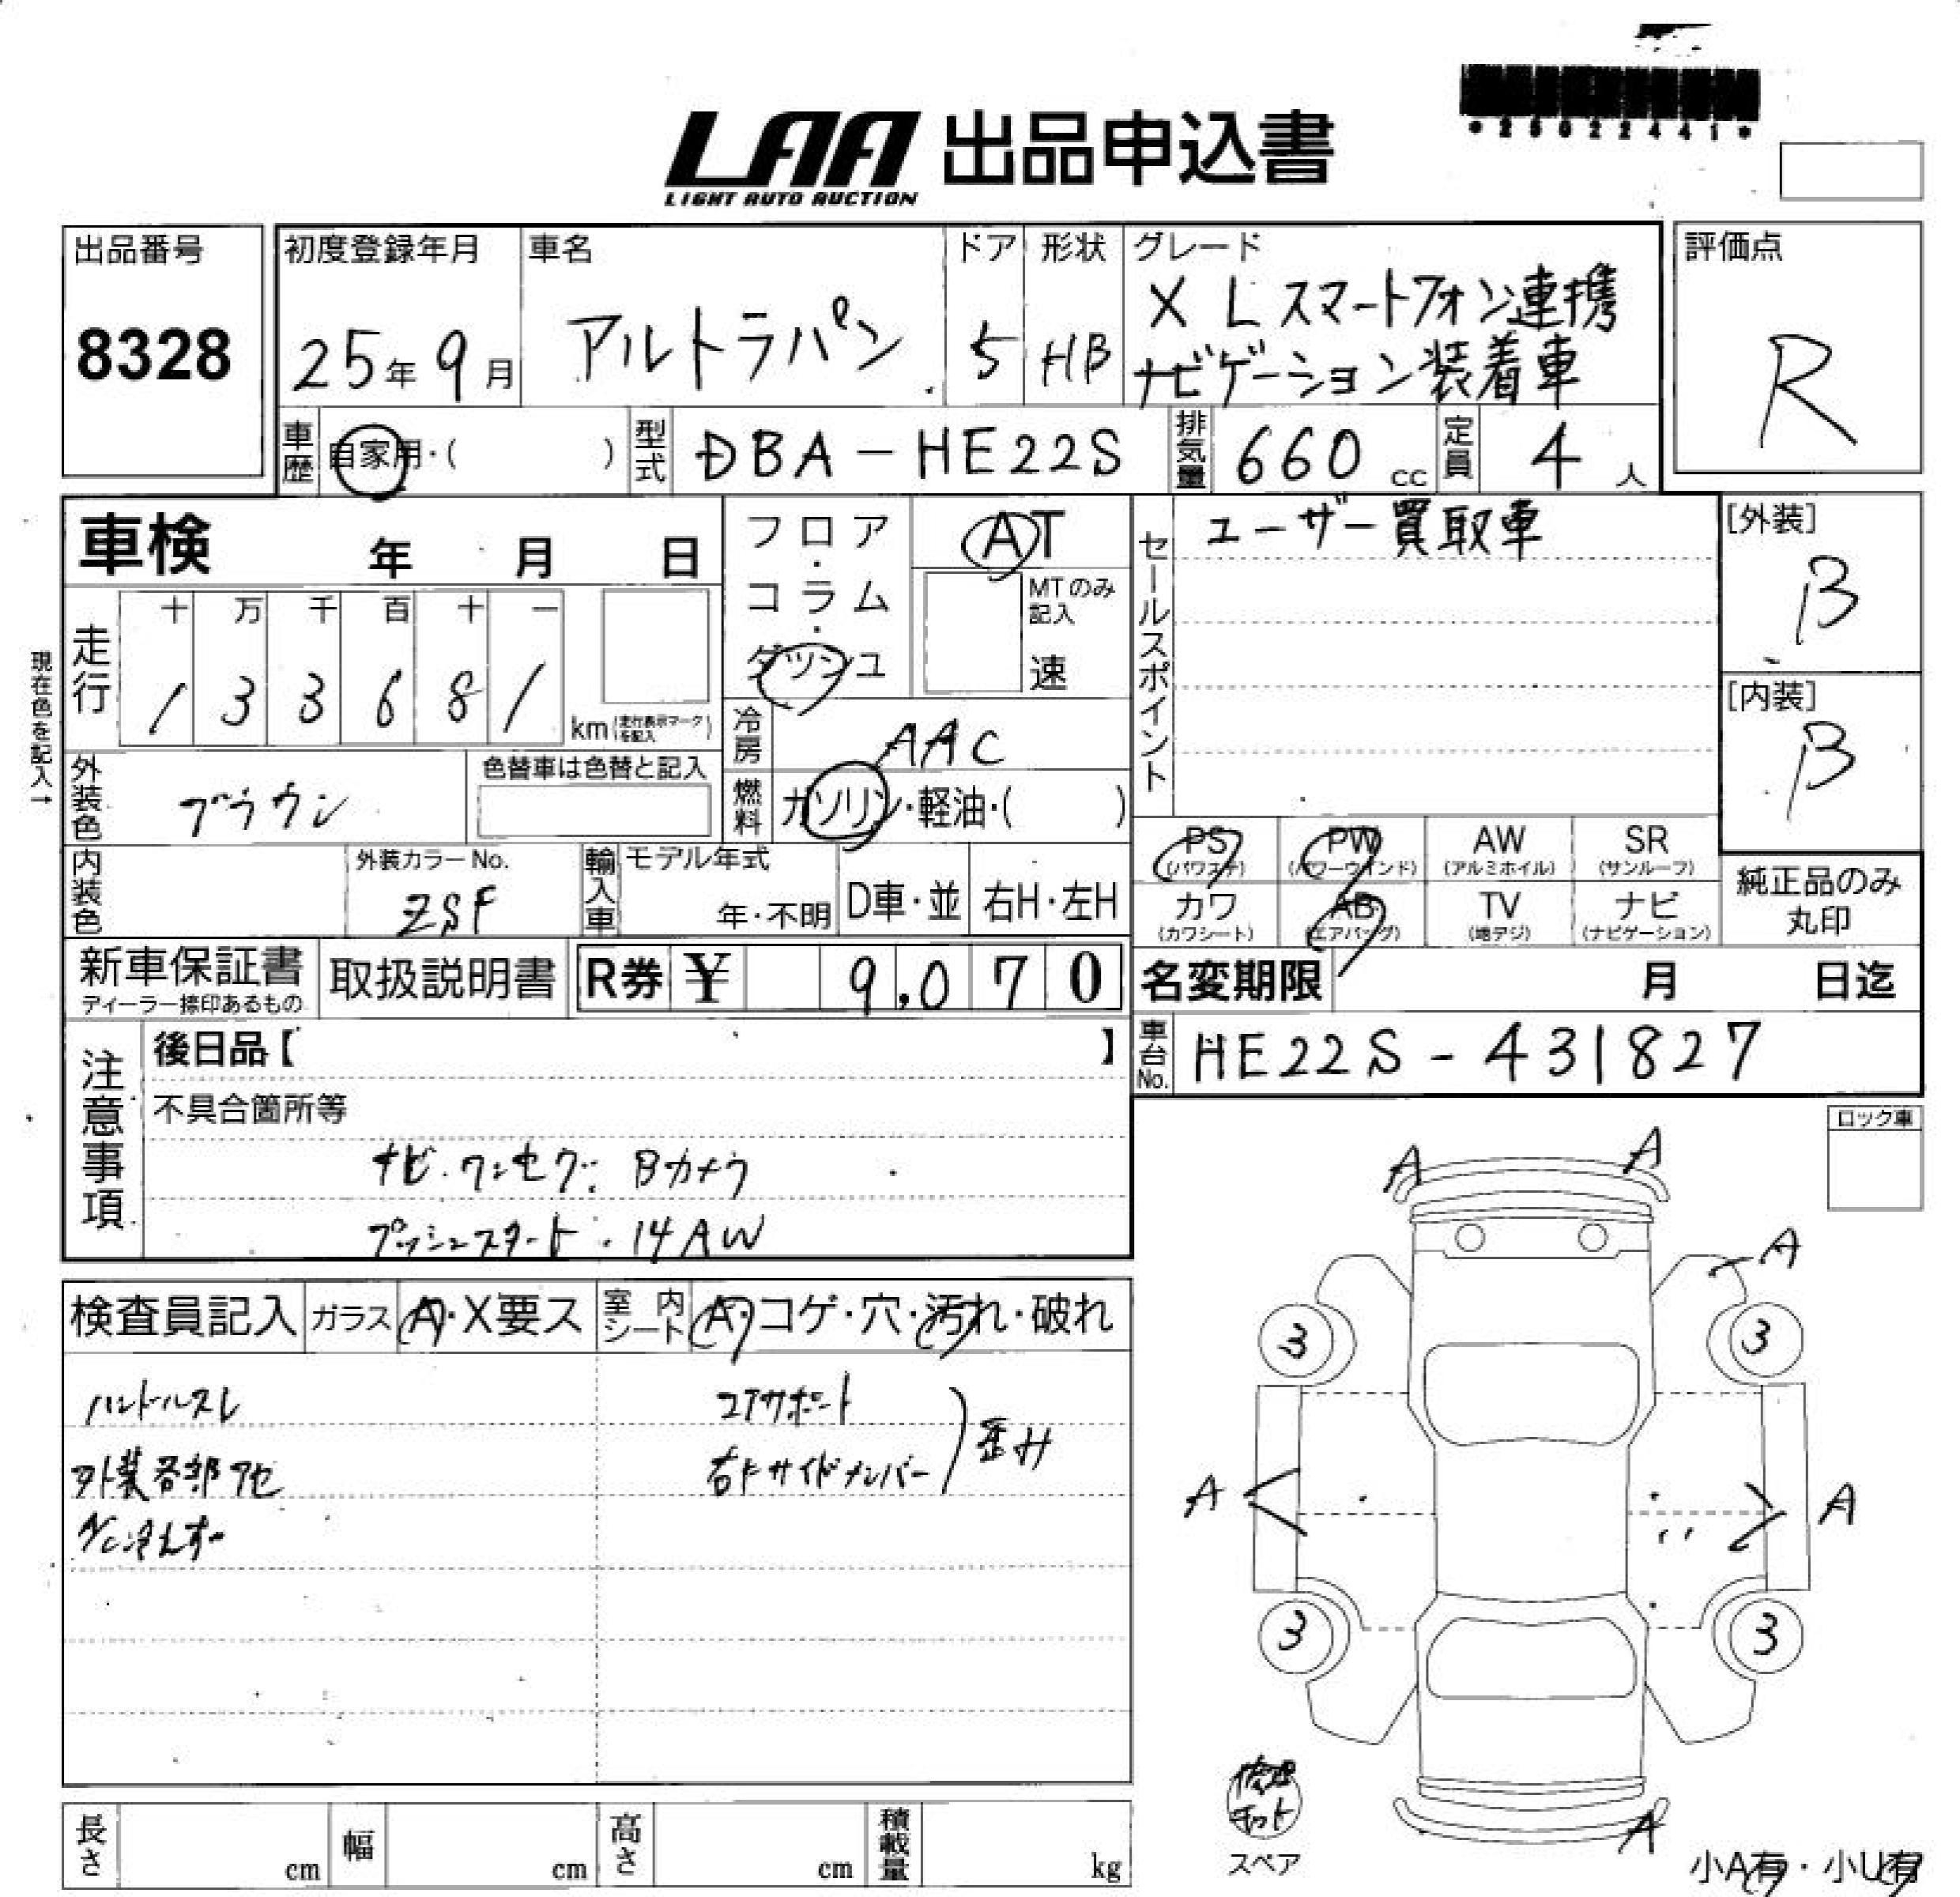 *25022441*
LAA 出品申込書
LIGHT AUTO AUCTION
出品番号
8328
初度登録年月
25年9月
車名
アルトラパン
ドア
5
形状
HB
グレード
X Lスマートフォン連携
ナビゲーション装着車
評価点
R
車歴 自家用・( )
型式 DBA-HE22S
排気量 660 cc
定員 4 人
車検 年 月 日
フロア・コラム・ダッシュ
AT
MTのみ記入
速
セールスポイント
ユーザー買取車
[外装]
B
[内装]
B
現在色を記入→
走行
十 万 千 百 十 一
1 3 3 6 8 1
km (走行表示マークを記入)
冷房 AAC
燃料 ガソリン・軽油・( )
外装色 ブラウン
色替車は色替と記入
内装色
外装カラーNo.
ZSF
輸入車
モデル年式
年・不明
D車・並
右H・左H
PS (パワステ)
PW (パワーウインド)
AW (アルミホイル)
SR (サンルーフ)
カワ (カワシート)
AB (エアバッグ)
TV (地デジ)
ナビ (ナビゲーション)
純正品のみ
丸印
新車保証書
ディーラー捺印あるもの
取扱説明書
R券 ¥ 9,070
名変期限 月 日迄
車台No. HE22S-431827
注意事項
後日品【 】
不具合箇所等
ナビ・ワンセグ・Bカメラ
プッシュスタート・14AW
ロック車
検査員記入
ガラス A・X要ス
室内シート A・コゲ・穴・汚れ・破れ
ハンドルスレ
外装各部アセ
A/C冷えず
コアサポート
右Fサイドメンバー
歪み
A A
A
3 3
A A
3 3
A
修理
キット
スペア
小A有・小U有
長さ cm
幅 cm
高さ cm
積載量 kg